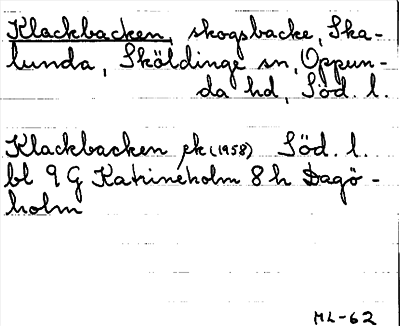 Klackbacken, skogsbacke, Ska-
lunda, Sköldinge sn, Oppun-
da hd, Söd. l.
Klackbacken ek (1958) Söd. l.
bl 9 G Katrineholm 8 h Dagö-
holm
ML-62